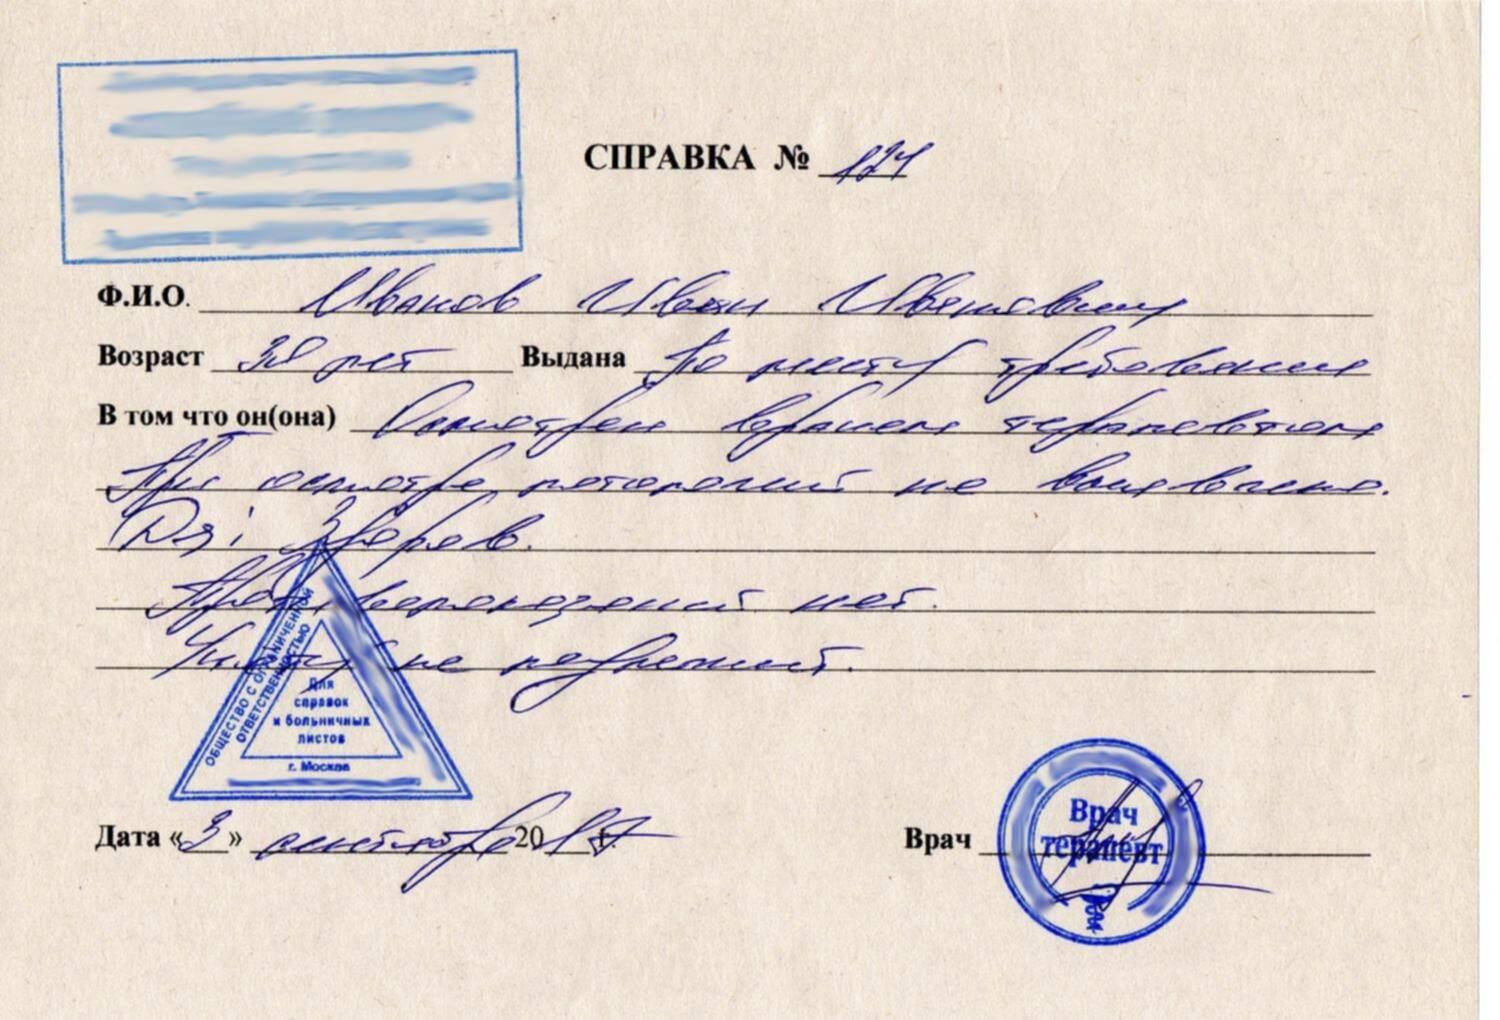 СПРАВКА № 124
Ф.И.О. Иванов Иван Иванович
Возраст 38 лет Выдана По месту требования
В том что он(она) Осмотрен врачом терапевтом
При осмотре патологий не выявлено.
Ds: Здоров.
Противопоказаний нет.
не
ОБЩЕСТВО С ОГРАНИЧЕННОЙ
ОТВЕТСТВЕННОСТЬЮ
Для
справок
и больничных
листов
г. Москва
Дата «3» сентября 2017 г.
Врач
Врач
терапевт